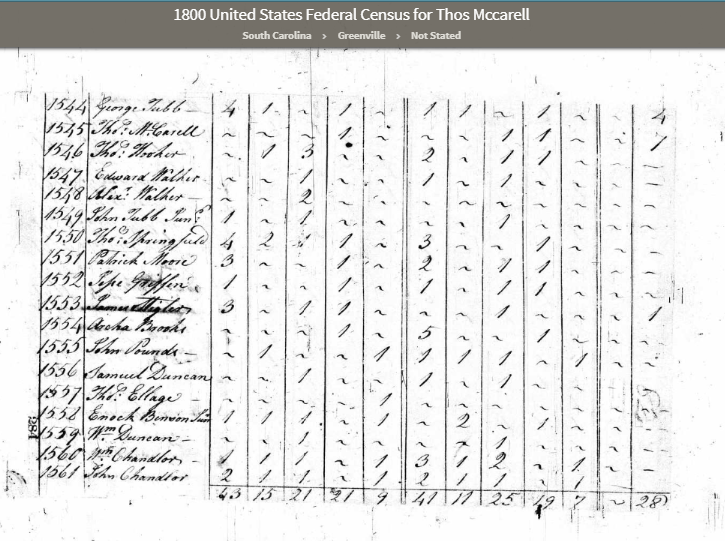 1800 United States Federal Census for Thos Mccarell
South Carolina › Greenville › Not Stated
1544 George Tubb 4 1 ~ 1 ~ 1 1 ~ 1 ~ 4
1545 Thos. McCarell ~ ~ ~ 1 ~ ~ ~ 1 1 ~ 7
1546 Thos. ~ 1 3 ~ 2 ~ 1 1 ~
1547 Edward Walker ~ ~ 1 ~ ~ 1 ~ 1 ~ ~
1548 Alexr. Walker ~ ~ 2 ~ ~ ~ ~ ~ ~
1549 John Tubb Junr. 1 ~ 1 ~ ~ ~ ~ 1 ~ ~
1550 Thos. Springfield 4 2 1 ~ 3 ~ ~ 1 ~
1551 Patrick Moore 3 ~ ~ 1 ~ 2 ~ 1 1 ~
1552 Griffin 1 ~ ~ 1 ~ 1 ~ 1 1 ~
1553 James 3 ~ 1 1 ~ ~ ~ 1 ~ ~ 1
1554 Brooks ~ ~ ~ 1 ~ 5 ~ ~ 1 ~
1555 John Pounds ~ 1 ~ ~ 1 1 1 1 ~ 1
1556 Samuel Duncan ~ ~ 1 ~ ~ 1 ~ 1 ~ ~
1557 Thos. Ellage ~ ~ ~ ~ 1 ~ ~ ~ ~ ~
1558 Enoch Benson 1 1 1 ~ 1 ~ 2 ~ 1 ~
1559 Wm. Duncan ~ ~ 1 ~ ~ ~ 1 ~ ~
1560 Wm. Chandlor 1 1 1 ~ 1 3 1 2 ~ 1
1561 John Chandlor 2 1 1 ~ 1 2 1 1 ~ 1
43 15 21 21 9 41 11 25 19 7 ~ 28